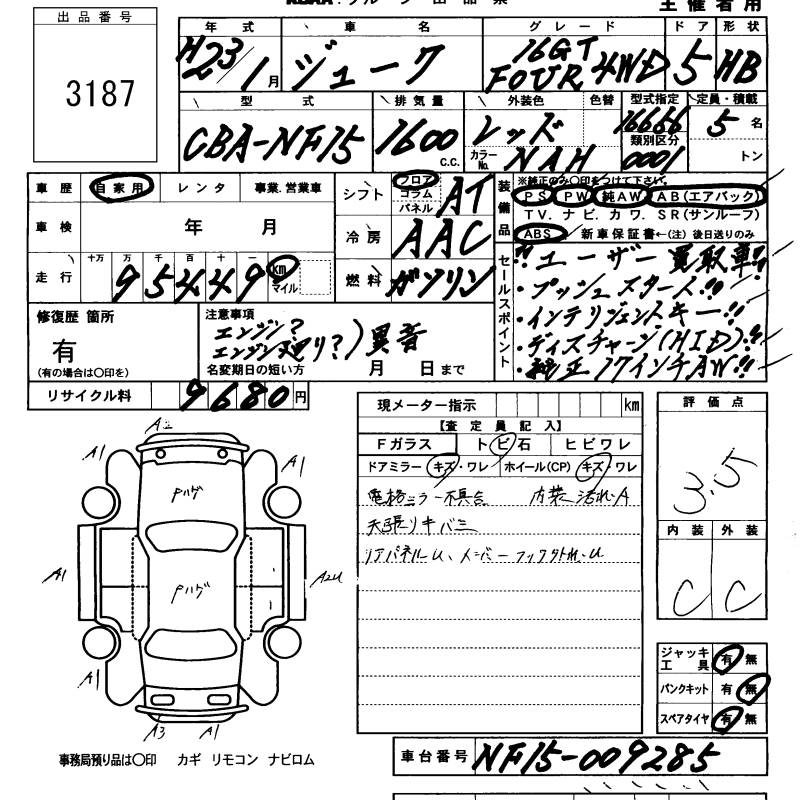 主催者用
出品番号
3187
年式 車名 グレード ドア 形状
H23/1月 ジューク 16GT FOUR 4WD 5 HB
型式 排気量 外装色 色替 型式指定 定員・積載
CBA-NF15 1600 c.c. レッド 16656 5名
カラーNo. NAH 類別区分 0001 トン
車歴 自家用 レンタ 事業.営業車
シフト フロア コラム パネル AT
装備品 ※純正のみ〇印をつけて下さい。
PS PW 純AW AB(エアバック)
TV. ナビ. カワ. SR(サンルーフ)
ABS 新車保証書←(注)後日送りのみ
車検 年 月
冷房 AAC
走行 十万 万 千 百 十 一
95449 km マイル
燃料 ガソリン
セールスポイント
!!ユーザー買取車!!
・プッシュスタート!!
・インテリジェントキー!!
・ディスチャーン(HID)!!
・純正17インチAW!!
修復歴 箇所
有
(有の場合は〇印を)
注意事項
エンジン?
エンジン廻り?)異音
名変期日の短い方 月 日まで
リサイクル料 9680円
現メーター指示 km
【査定員記入】
Fガラス トビ石 ヒビワレ
ドアミラー キズ・ワレ ホイール(CP) キズ・ワレ
電格ミラー不具合 内装汚れA
天張りキバミ
リアパネルU、メンバーフック外れ、U
評価点
3.5
内装 外装
C C
A2
A1 A1
Pハゲ
A1 Pハゲ A2U
A1 A1
A3 A1
ジャッキ工具 有 無
パンクキット 有 無
スペアタイヤ 有 無
事務局預り品は〇印 カギ リモコン ナビロム
車台番号 NF15-009285